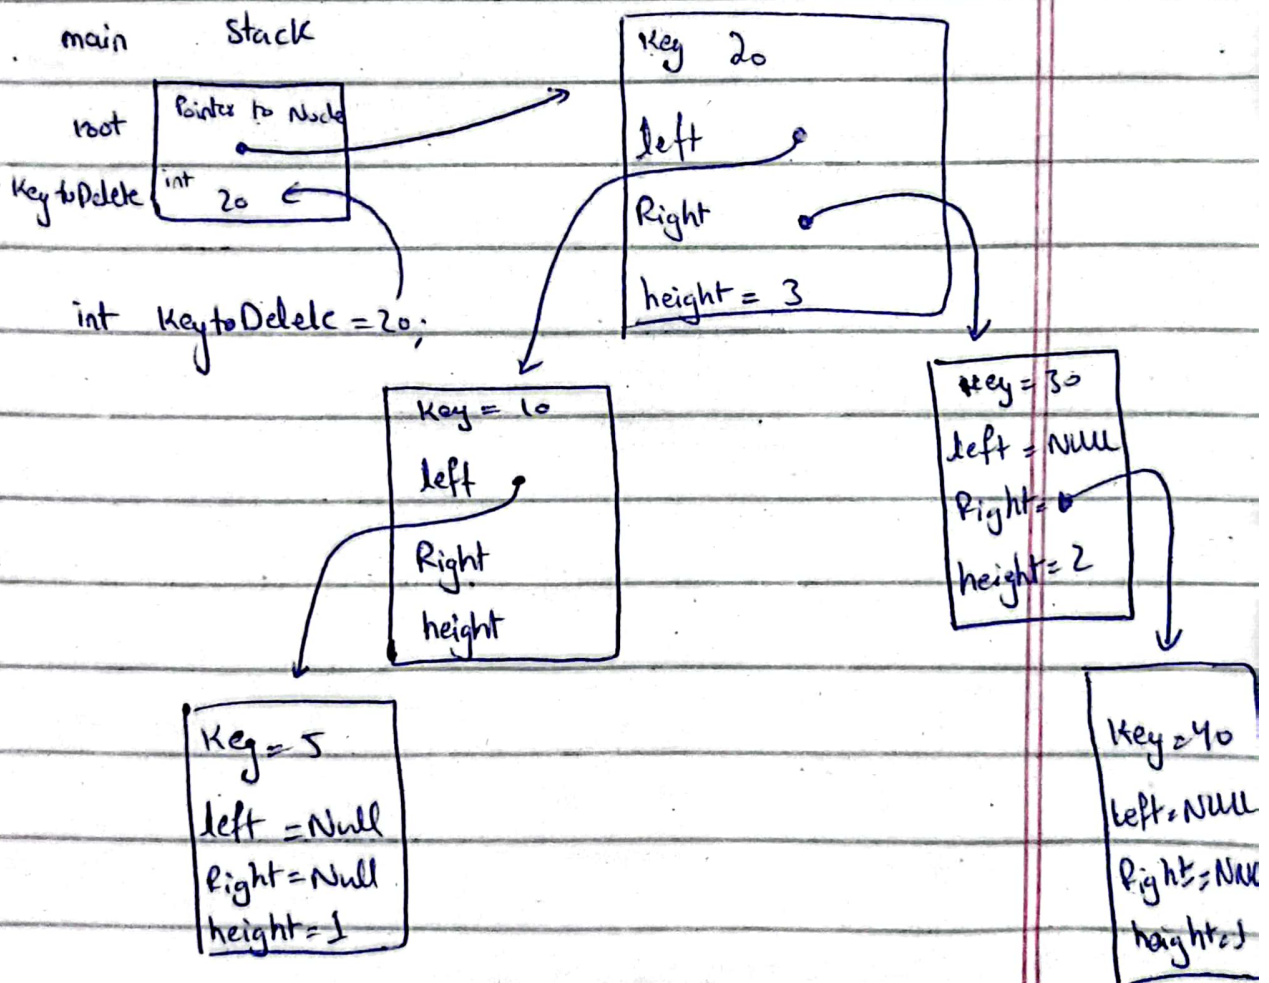 main stack
root
Pointer to Node
KeytoDelete
int
20
int KeytoDelete = 20;
Key 20
left
Right
height = 3
Key = 10
left
Right
height
Key = 30
left = NULL
Right =
height = 2
Key = 5
left = Null
Right = Null
height = 1
Key = 40
left = NULL
Right = NUL
height = 1